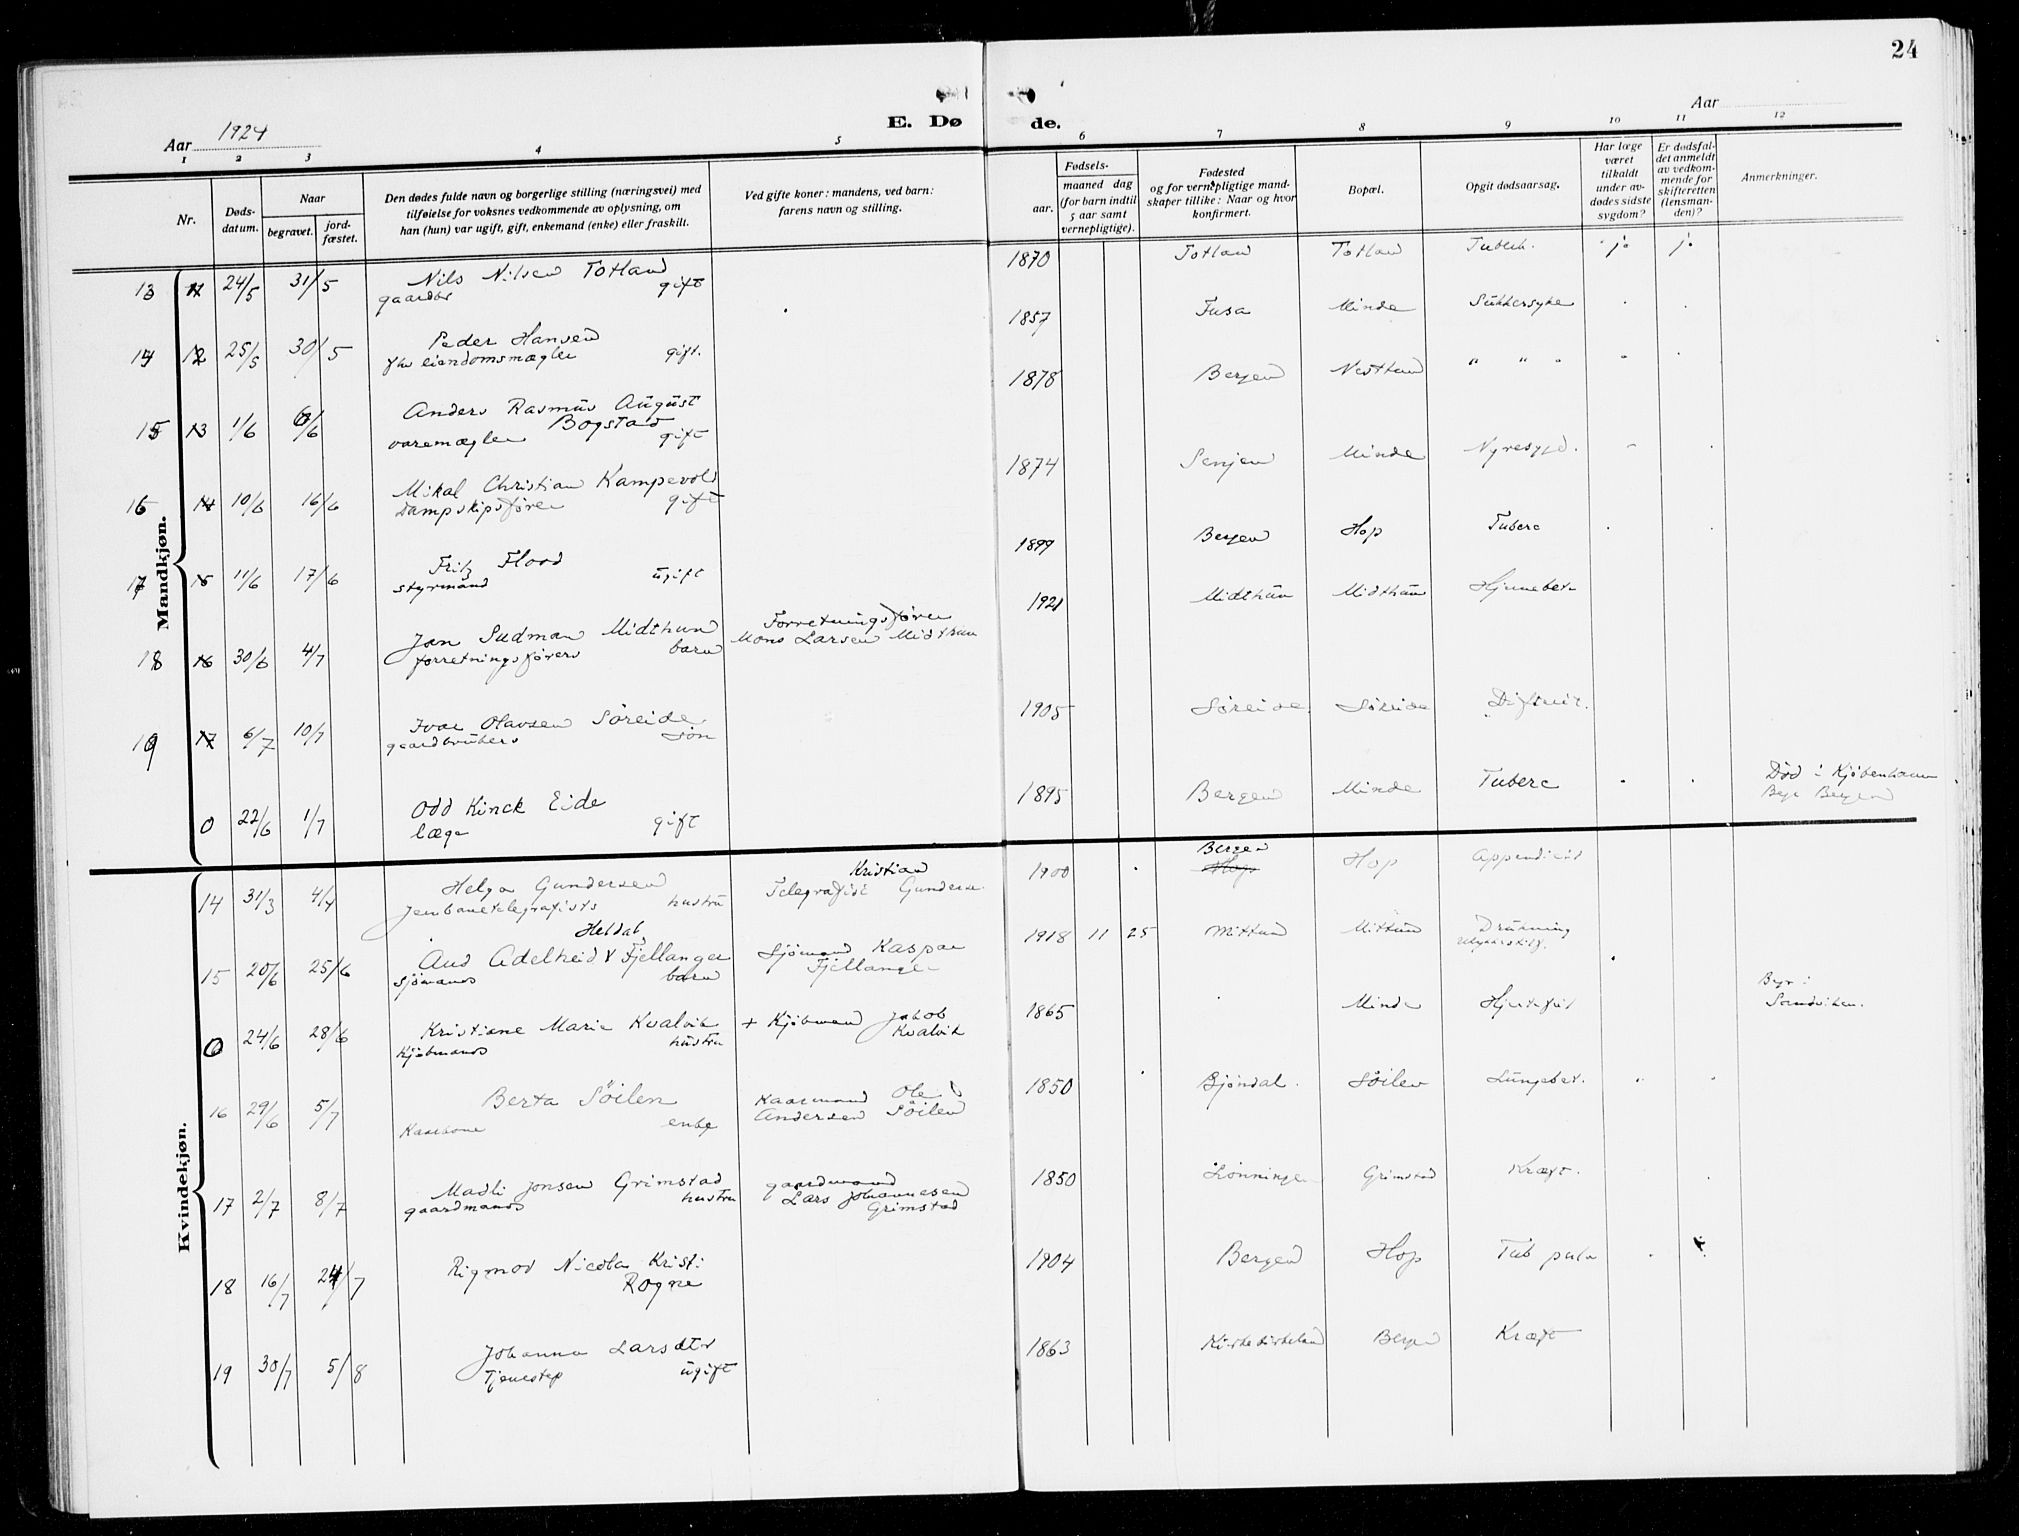 24
Aar 1924
E. Døde.
Aar
1 2 3 4 5 6 7 8 9 10 11 12
Nr.
Døds-
datum.
Naar
begravet.
jord-
fæstet.
Den dødes fulde navn og borgerlige stilling (næringsvei) med
tilføielse for voksnes vedkommende av oplysning, om
han (hun) var ugift, gift, enkemand (enke) eller fraskilt.
Ved gifte koner: mandens, ved barn:
farens navn og stilling.
Fødsels-
aar.
maaned dag
(for barn indtil
5 aar samt
vernepligtige).
Fødested
og for vernepligtige mand-
skaper tillike: Naar og hvor
konfirmert.
Bopæl.
Opgit dødsaarsag.
Har læge
været
tilkaldt
under av-
dødes sidste
sygdom?
Er dødsfal-
det anmeldt
av vedkom-
mende for
skifteretten
(lensman-
den)?
Anmerkninger.
Mandkjøn.
13 11 24/5 31/5 Nils Nilsen Totland 1870 Totland Totland Tuberk. ja ja
gaardbr gift
14 12 25/5 30/5 Peder Hansen 1857 Fusa Minde Sukkersyke
fhv eiendomsmægler gift.
15 13 1/6 6/6 Anders Rasmus August 1878 Bergen Nestthun " " "
Bogstad
varemægler gift
16 14 10/6 16/6 Mikal Christian Kampevold 1874 Senjen Minde Nyresygd.
Dampskipsfører gift
17 15 11/6 17/6 Fritz Flood 1899 Bergen Hop Tuberc
styrmand ugift
18 16 30/6 4/7 Jan Sudman Midthun Forretningsfører 1921 Midthun Midthun Hjernebet.
forretningsførers barn Mons Larsen Midthun
19 17 6/7 10/7 Ivar Olavsen Søreide 1905 Søreide Søreide Difterit.
gaardbrukers søn
0 22/6 1/7 Odd Kinck Eide 1895 Bergen Minde Tuberc Død i Kjøbenhavn
læge gift Begr Bergen
Kvindekjøn.
14 31/3 4/4 Helga Gundersen Kristian 1900 Bergen Hop Appendicit
Jernbanetelegrafists hustru Telegrafist Gundersen Hop
15 20/6 25/6 Aud Adelheid Heldal Fjellanger Sjømand Kaspar 1918 11 25 Mittun Mittun Drukning
Sjømands barn Fjellanger
0 24/6 28/6 Kristiane Marie Kvalvik + Kjøbmand Jakob 1865 Minde Hjertefeil Begr i
Kjøbmands hustru Kvalvik Sandviken.
16 29/6 5/7 Berta Søilen Kaarmand Ole 1850 Bjøndal. Søilen Lungebet.
Kaarkone enke Andersen Søilen
17 2/7 8/7 Madli Jonsen Grimstad gaardmand 1850 Lønningen Grimstad Kræft.
gaardmands hustru Lars Johannesen
Grimstad
18 16/7 24/7 Rigmor Nicola Kristi 1904 Bergen Hop Tub pulm
Rogne
19 30/7 5/8 Johanna Larsdtr 1863 Kirkebirkeland Bergen Kræft
Tjenestep ugift